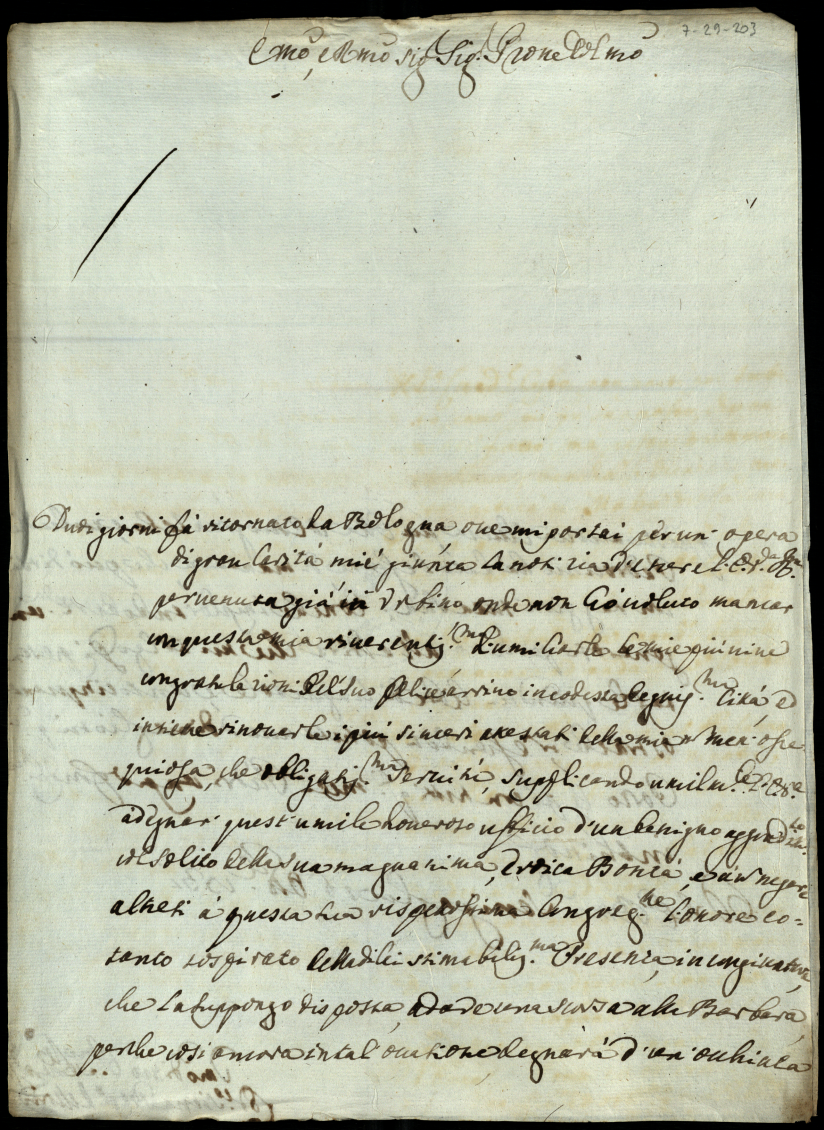 7-29-203
Emo, e Rmo Sig.r Sig.r Prone Colmo
Due giorni fà ritornato da Bologna ove mi portai per un' opera
di gran Carità mi é giunta la notizia d'essere l'E. V.
pervenuta già in Urbino onde non hò voluto mancar
con questa mia riverentis.ma d'umiliarle le mie più vive
congratulazioni del suo felice arrivo in codesta degnis.ma Città, ed
insieme rinovarle i più sinceri attestati della mia non men' osse
quiosa, che obligatis.ma servitù, supplicando umilm.te l'E. V.
a degnar quest' umile honeroso ufficio d'un benigno aggradim.to
solito della sua magnanima, Eroica Bontá, e a non negare
altresì á questa sua rispettosissima Congreg.ne l'onore co=
tanto sospirato della di lei stimabilis.ma Presenza, in congiuntura
che la suppongo disposta, a dare una scorsa alla Barbara,
perche così ancora in tal' occasione degnarà d'un' occhiata